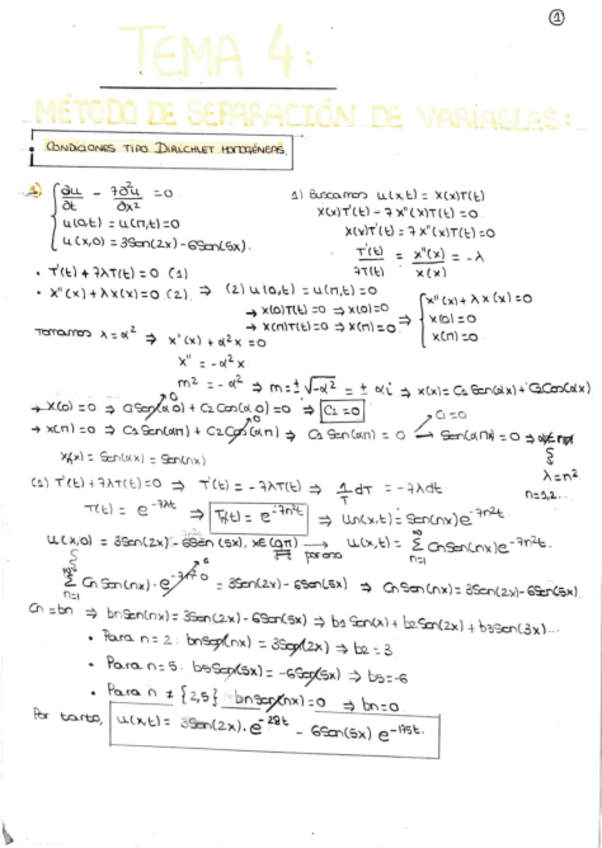 ①
TEMA 4:
MÉTODO DE SEPARACIÓN DE VARIABLES:
CONDICIONES TIPO DIRICHLET HOMOGÉNEAS.
1) { ∂u/∂t - 7∂²u/∂x² = 0
u(0,t) = u(π,t) = 0
u(x,0) = 3Sen(2x) - 6Sen(5x).
1) Buscamos u(x,t) = X(x)T(t)
X(x)T'(t) - 7X''(x)T(t) = 0
X(x)T'(t) = 7X''(x)T(t) = 0
T'(t)/7T(t) = X''(x)/X(x) = -λ
• T'(t) + 7λT(t) = 0 (1)
• X''(x) + λX(x) = 0 (2). ⇒ (2) u(0,t) = u(π,t) = 0
→ X(0)T(t) = 0 ⇒ X(0) = 0
→ X(π)T(t) = 0 ⇒ X(π) = 0 ⇒ { X''(x) + λX(x) = 0
X(0) = 0
X(π) = 0
Tomamos λ = α² ⇒ X''(x) + α²x = 0
X'' = -α²x
m² = -α² ⇒ m = ±√-α² = ± αi ⇒ X(x) = C1 Sen(αx) + C2Cos(αx)
→ X(0) = 0 ⇒ C1Sen(α0) + C2Cos(α.0) = 0 ⇒ C2 = 0
→ X(π) = 0 ⇒ C1 Sen(απ) + C2Cos(απ) ⇒ C1 Sen(απ) = 0 → Sen(απ) = 0 ⇒ α=nπ
C1=0
λ = n²
n = 1,2...
X(x) = Sen(αx) = Sen(nx)
(1) T'(t) + 7λT(t) = 0 ⇒ T'(t) = -7λT(t) ⇒ 1/T dT = -7λdt
T(t) = e^-7λt ⇒ Tn(t) = e^-7n²t ⇒ Un(x,t) = Sen(nx)e^-7n²t
u(x,0) = 3Sen(2x) - 6Sen(5x), x∈(0,π) → por eso u(x,t) = ∑ n=1 ∞ CnSen(nx)e^-7n²t.
∑ n=1 ∞ Cn Sen(nx)·e^-7n²0 = 3Sen(2x) - 6Sen(5x) ⇒ CnSen(nx) = 3Sen(2x) - 6Sen(5x).
Cn = bn ⇒ bnSen(nx) = 3Sen(2x) - 6Sen(5x) ⇒ b1 Sen(x) + b2Sen(2x) + b3Sen(3x)...
• Para n = 2: bnSen(nx) = 3Sen(2x) ⇒ b2 = 3
• Para n = 5: b5Sen(5x) = -6Sen(5x) ⇒ b5 = -6
• Para n ≠ {2,5} bnSen(nx) = 0 ⇒ bn = 0
Por tanto, u(x,t) = 3Sen(2x)·e^-28t - 6Sen(5x) e^-175t.